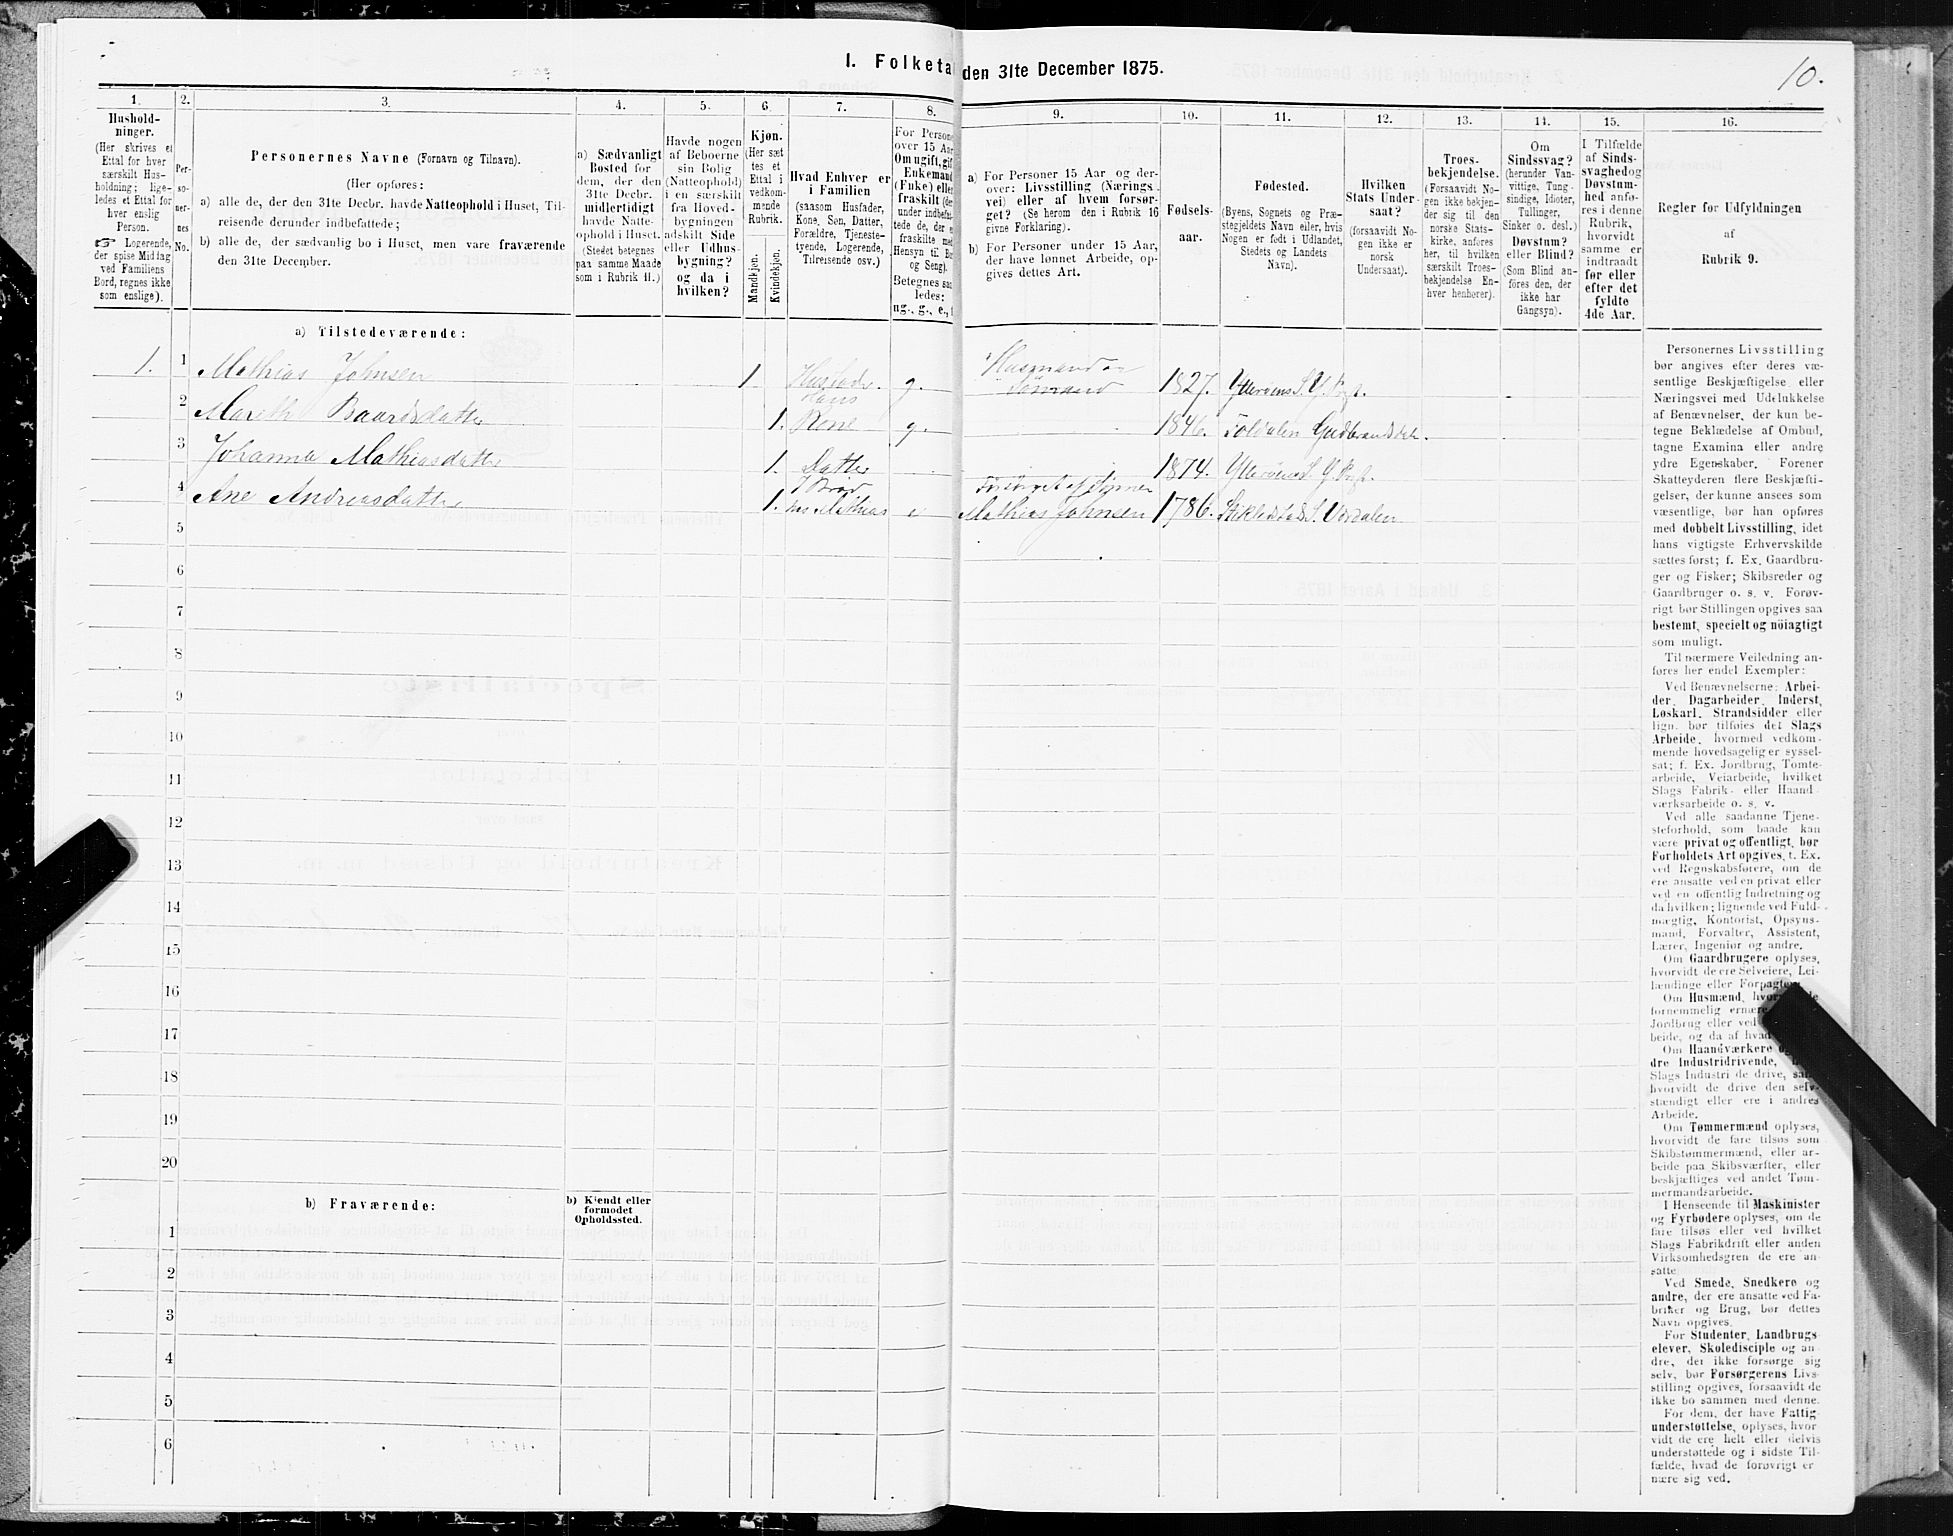 I. Folketal den 31te December 1875.
10.
1.
Hushold-
ninger.
(Her skrives et
Ettal for hver
særskilt Hus-
holdning; lige-
ledes et Ettal for
hver enslig
Person.
Logerende,
der spise Middag
ved Familiens
Bord, regnes ikke
som enslige).
2.
Per-
so-
ner-
nes
No.
3.
Personernes Navne (Fornavn og Tilnavn).
(Her opføres:
a) alle de, der den 31te Decbr. havde Natteophold i Huset, Til-
reisende derunder indbefattede;
b) alle de, der sædvanlig bo i Huset, men vare fraværende
den 31te December.
4.
a) Sædvanligt
Bosted for
dem, der den
31te Decbr.
midlertidigt
havde Natte-
ophold i Huset.
(Stedet betegnes
paa samme Maade
som i Rubrik 11.)
5.
Havde nogen
af Beboerne
sin Bolig
(Natteophold)
i en særskilt
fra Hoved-
bygningen
adskilt Side
eller Udhus-
bygning?
og da i
hvilken?
6.
Kjøn.
(Her sæt
tes et
Ettal i
vedkom-
mende
Rubrik.
Mandkjøn.
Kvindekjøn.
7.
Hvad Enhver er
i Familien
(saasom Husfader,
Kone, Søn, Datter,
Forældre, Tjeneste-
tyende, Logerende,
Tilreisende osv.)
8.
For Persone
over 15 Aar
Om ugift, gift
Enkemand
(Enke) eller
fraskilt (der
under indbefat
tede de, der e
fraskilte med
Hensyn til Bo
og Seng).
Betegnes saa
ledes:
ug., g., e., f
9.
a) For Personer 15 Aar og der-
over: Livsstilling (Nærings
vei) eller af hvem forsør-
get? (Se herom den i Rubrik 16
givne Forklaring).
b) For Personer under 15 Aar,
der have lønnet Arbeide, op-
gives dettes Art.
10.
Fødsels-
aar.
11.
Fødested.
(Byens, Sognets og Præ-
stegjeldets Navn eller, hvis
Nogen er født i Udlandet,
Stedets og Landets
Navn).
12.
Hvilken
Stats Under-
saat?
(forsaavidt No-
gen ikke er
norsk
Undersaat).
13.
Troes-
bekjendelse.
(Forsaavidt No-
gen ikke bekjen-
der sig til den
norske Stats-
kirke, anføres
her, til hvilken
særskilt Troes-
bekjendelse En-
hver henhører).
14.
Om
Sindssvag?
(herunder Van-
vittige, Tung-
sindige, Idioter,
Tullinger,
Sinker o. desl.)
Døvstum?
eller Blind?
(Som Blind an-
føres den, der
ikke har
Gangsyn).
15.
I Tilfælde
af Sinds-
svaghed og
Døvstum-
hed anfø-
res i denne
Rubrik,
hvorvidt
samme er
indtraadt
før eller
efter det
fyldte
4de Aar.
16.
Regler for Udfyldningen
af
Rubrik 9.
a) Tilstedeværende:
1. 1 Mathias Johnsen 1 Husfader g. Husmand m 1827. Ytterøens S. Y. Prgj.
2 Mareth Baardsdatter 1. Hans Kone g. 1846. Toldalen Gudbrandsdalen.
3 Johanna Mathiasdatter 1. Datter 1874. Ytterøens S. Y. Prgj.
4 Ane Andreasdatter 1. Mathias e Forsørget af Mathias Johnsen 1786. Stiklestads S. Værdalen
5
6
7
8
9
10
11
12
13
14
15
16
17
18
19
20
b) Fraværende:
b) Kjendt eller
formodet
Opholdssted.
1
2
3
4
5
6
Personernes Livsstilling
bør angives efter deres væ-
sentlige Beskjæftigelse eller
Næringsvei med Udelukkelse
af Benævnelser, der kun be-
tegne Beklædelse af Ombud,
tagne Examina eller andre
ydre Egenskaber. Forener
Skatteyderen flere Beskjæfti-
gelser, der kunne ansees som
væsentlige, bør han opføres
med dobbelt Livsstilling, idet
hans vigtigste Erhvervskilde
sættes først; f. Ex. Gaardbru-
ger og Fisker; Skibsreder og
Gaardbruger o. s. v. Forøv-
rigt bør Stillingen opgives saa
bestemt, specielt og nöiagtigt
som muligt.
Til nærmere Veiledning an-
føres her endel Exempler:
Ved Benævnelserne: Arbei-
der, Dagarbeider, Inderst,
Løskarl, Strandsidder eller
lign. bør tilføies det Slags
Arbeide, hvormed vedkom-
mende hovedsagelig er syssel-
sat; f. Ex. Jordbrug, Tomte-
arbeide, Veiarbeide, hvilket
Slags Fabrik- eller Haand
værksarbeide o. s. v.
Ved alle saadanne Tjene-
steforhold, som baade kan
være privat og offentligt, bør
Forholdets Art opgives, t. Ex.
ved Regnskabsførere, om de
ere ansatte ved en privat eller
ved en offentlig Indretning og
da hvilken; lignende ved Fuld-
mægtig, Kontorist, Opsyns-
mand, Forvalter, Assistent,
Lærer, Ingeniør og andre.
Om Gaardbrugere oplyses,
hvorvidt de ere Selveiere, Lei-
lændinge eller Forpagtere
Om Husmænd, hvor
fornemmelig ernære
Jordbrug eller ved
beide, og da af hvad
Om Haandværkere og
dre Industridrivende,
Slags Industri de drive, sa
hvorvidt de drive den selv-
stændigt eller ere i andres
Arbeide.
Om Tømmermænd oplyses,
hvorvidt de fare tilsøs som
Skibstømmermænd, eller ar-
beide paa Skibsværfter, eller
beskjæftiges ved andet Tøm-
mermandsarbeide.
I Henseende til Maskinister
og Fyrbødere oplyses, om de
fare tilsøs eller ved hvilket
Slags Fabrikdrift eller anden
Virksomhedsgren de ere an-
satte
Ved Smede, Snedkere og
andre, der ere ansatte ved Fa-
briker og Brug, bør dettes
Navn opgives.
For Studenter, Landbrugs-
elever, Skoledisciple og an-
dre, der ikke forsørge sig
selv, bør Forsørgerens Livs-
stilling opgives, forsaavidt de
ikke bo sammen med denne.
For dem, der have Fattig
understøttelse, oplyses, hvor-
vidt de ere helt eller delvis
understøttede og i sidste Til-
fælde, hvad de forøvrigt er
nære sig ved.